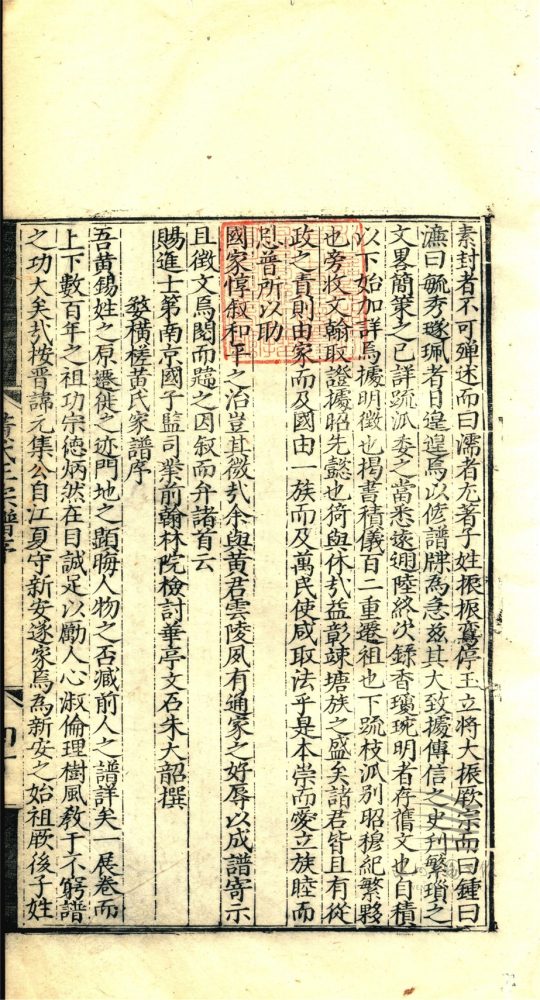 素封者不可殫述而曰濡者尤著子姓振振鸞停玉立將大振厥宗而曰鍾曰
濂曰毓秀璲珮者日遑遑焉以修譜牒為急茲其大致據傳信之史刋繁瑣之
文畧簡策之已詳疏派委之當悉遠迺陸終次録香瓊琬明者存舊文也自積
以下始加詳焉據明徵也掲書積儀百二重遷祖也下䟽枝派别昭穆紀繁夥
也旁收文翰取證據昭先懿也猗與休㢤益彰竦塘族之盛矣諸君皆且有從
政之責則由家而及國由一族而及萬民使咸取法乎是本崇而愛立族睦而
恩普所以助
國家惇叙和平之治豈其微㢤余與黄君雲陵夙有通家之好辱以成譜寄示
且徵文焉閲而韙之因叙而弁諸首云
賜進士第南京國子監司業前翰林院檢討華亭文石朱大韶撰
婺橫槎黄氏家譜序
吾黄錫姓之原遷徙之迹門地之顯晦人物之否臧前人之譜詳矣一展卷而
上下數百年之祖功宗德炳然在目誠足以勵人心淑倫理樹風教于不窮譜
之功大矣㢤按晋諦元集公自江夏守新安遂家焉為新安之始祖厥後子姓